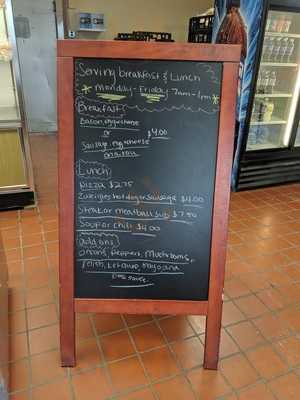 Serving breakfast & Lunch
* Monday - Friday 7am-1pm *
Breakfast
Bacon, egg, cheese
or $4.00
Sausage, egg, cheese
on a roll
Lunch
Pizza $2.75
Zweigles hot dog or sausage $4.00
Steak or meatball sub $7.50
Soup or chili $4.00
add ons
Onions, Peppers, Mushrooms,
relish, ketchup, mayo and
hot sauce